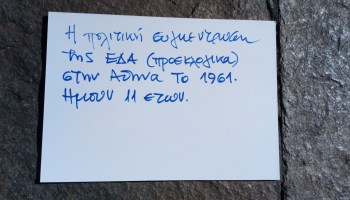 Η πολιτική συγκέντρωση
της ΕΔΑ (προεκλογικά)
στην Αθήνα το 1961.
Ημουν 11 ετων.